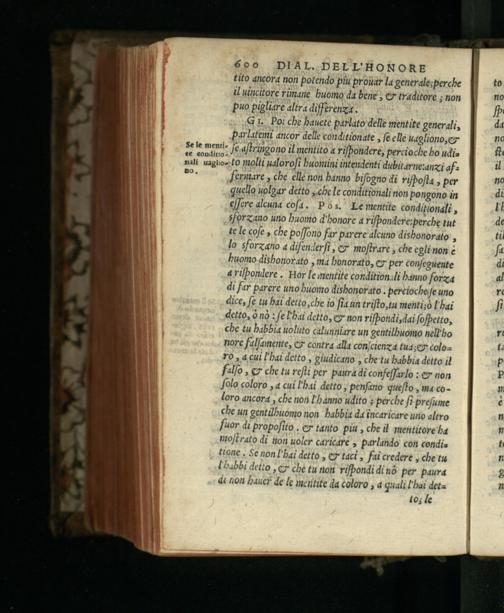 600 DIAL. DELL'HONORE
tito ancora non potendo piu prouar la generale; perche
il uincitore rimane huomo da bene, & traditore; non
puo pigliare altra differenza.
GI. Poi che hauete parlato delle mentite generali,
parlatemi ancor delle conditionate, se elle uagliono, &
se astringono il mentito a rispondere, percioche ho udi-
to molti ualorosi huomini intendenti dubitarne: anzi af-
fermare, che elle non hanno bisogno di risposta, per
quello uolgar detto, che le conditionali non pongono in
essere alcuna cosa. POS. Le mentite conditionali,
sforzano uno huomo d'honore a rispondere: perche tut
te le cose, che possono far parere alcuno dishonorato,
lo sforzano a difendersi, & mostrare, che egli non è
huomo dishonorato, ma honorato, & per conseguente
a rispondere. Hor le mentite conditionali hanno forza
di far parere uno huomo dishonorato. percioche se uno
dice, se tu hai detto, che io sia un tristo, tu menti; ò l'hai
detto, ò nò: se l'hai detto, & non rispondi, dai sospetto,
che tu habbia uoluto calunniare un gentilhuomo nell'ho
nore falsamente, & contra alla conscienza tua; & colo-
ro, a cui l'hai detto, giudicano, che tu habbia detto il
falso, & che tu resti per paura di confessarlo: & non
solo coloro, a cui l'hai detto, pensano questo, ma co-
loro ancora, che non l'hanno udito; perche si presume
che un gentilhuomo non habbia da incaricare uno altro
fuor di proposito. & tanto piu, che il mentitore ha
mostrato di non uoler caricare, parlando con condi-
tione. Se non l'hai detto, & taci, fai credere, che tu
l'habbi detto, & che tu non rispondi di nò per paura
di non hauer de le mentite da coloro, a quali l'hai det-
to; se
Se le menti-
te conditio-
nali uaglio-
no.